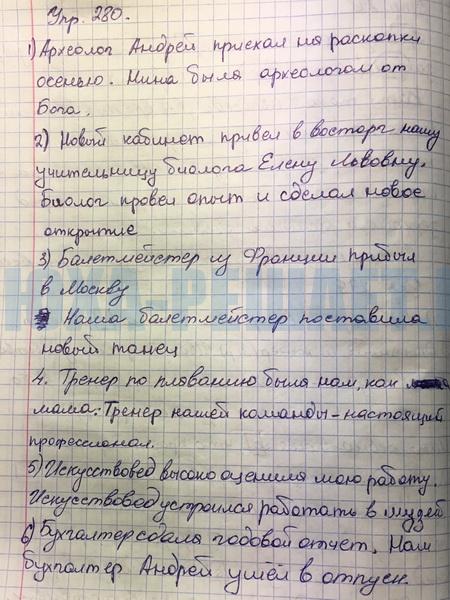 Упр. 280.
1) Археолог Андрей приехал на раскопки
осенью. Нина была археологом от
Бога.
2) Новый кабинет привел в восторг нашу
учительницу биолога Елену Львовну.
Биолог провел опыт и сделал новое
открытие
3) Балетмейстер из Франции прибыл
в Москву
Наша балетмейстер поставила
новый танец
4. Тренер по плаванию была нам, как
мама. Тренер нашей команды - настоящий
профессионал.
5) Искусствовед высоко оценила мою работу.
Искусствовед устроился работать в музей
6) Бухгалтер сдала годовой отчет. Нам
бухгалтер Андрей ушёл в отпуск